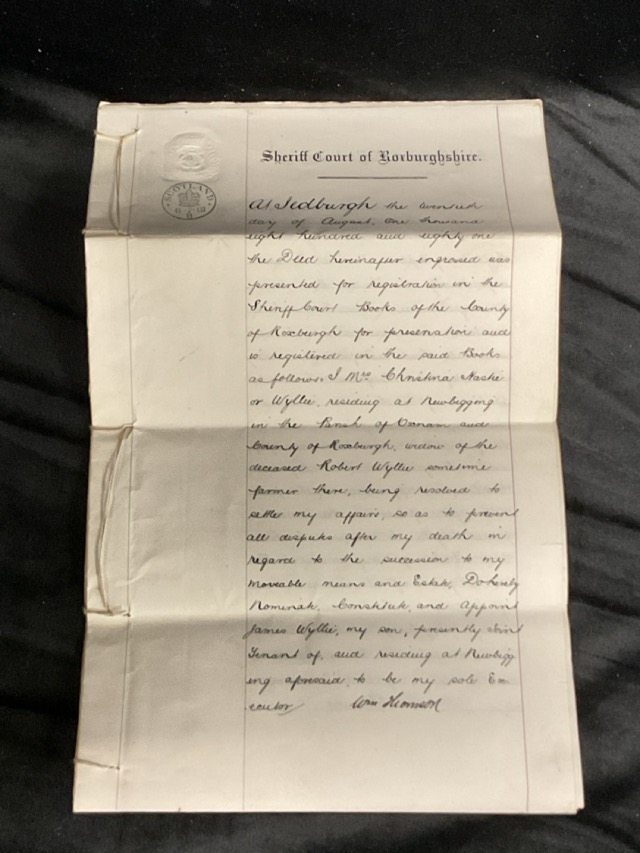 Sheriff Court of Roxburghshire.
SCOTLAND
At Jedburgh the twentieth
day of August, One thousand
eight hundred and eighty one
the Deed hereinafter engrossed was
presented for registration in the
Sheriff Court Books of the County
of Roxburgh for preservation and
is registered in the said Books
as follows: I Mrs Christina
or Wyllie, residing at Newbigging
in the Parish of Oxnam and
County of Roxburgh, widow of the
deceased Robert Wyllie sometime
farmer there, being resolved to
settle my affairs, so as to prevent
all disputes after my death in
regard to the succession to my
moveable means and Estate, Do hereby
Nominate, Constitute, and Appoint
James Wyllie, my son, presently Joint
Tenant of, and residing at Newbigg
ing aforesaid, to be my sole Ex=
ecutor
Wm Thomson